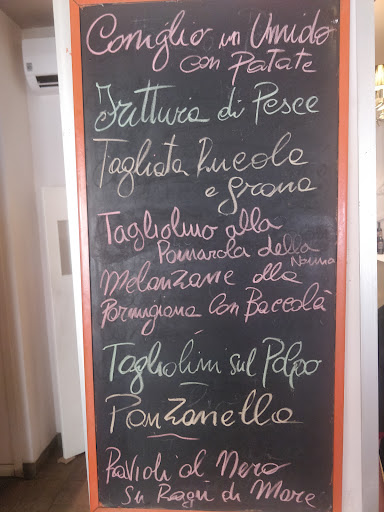 Coniglio in Umido
con Patate
Frittura di Pesce
Tagliata Rucola
e grana
Tagliolino alla
Pomarola della
Nonna
Melanzane alla
Parmigiana con Baccalà
Tagliolini sul Polpo
Panzanella
Ravioli al Nero
su Ragù di Mare